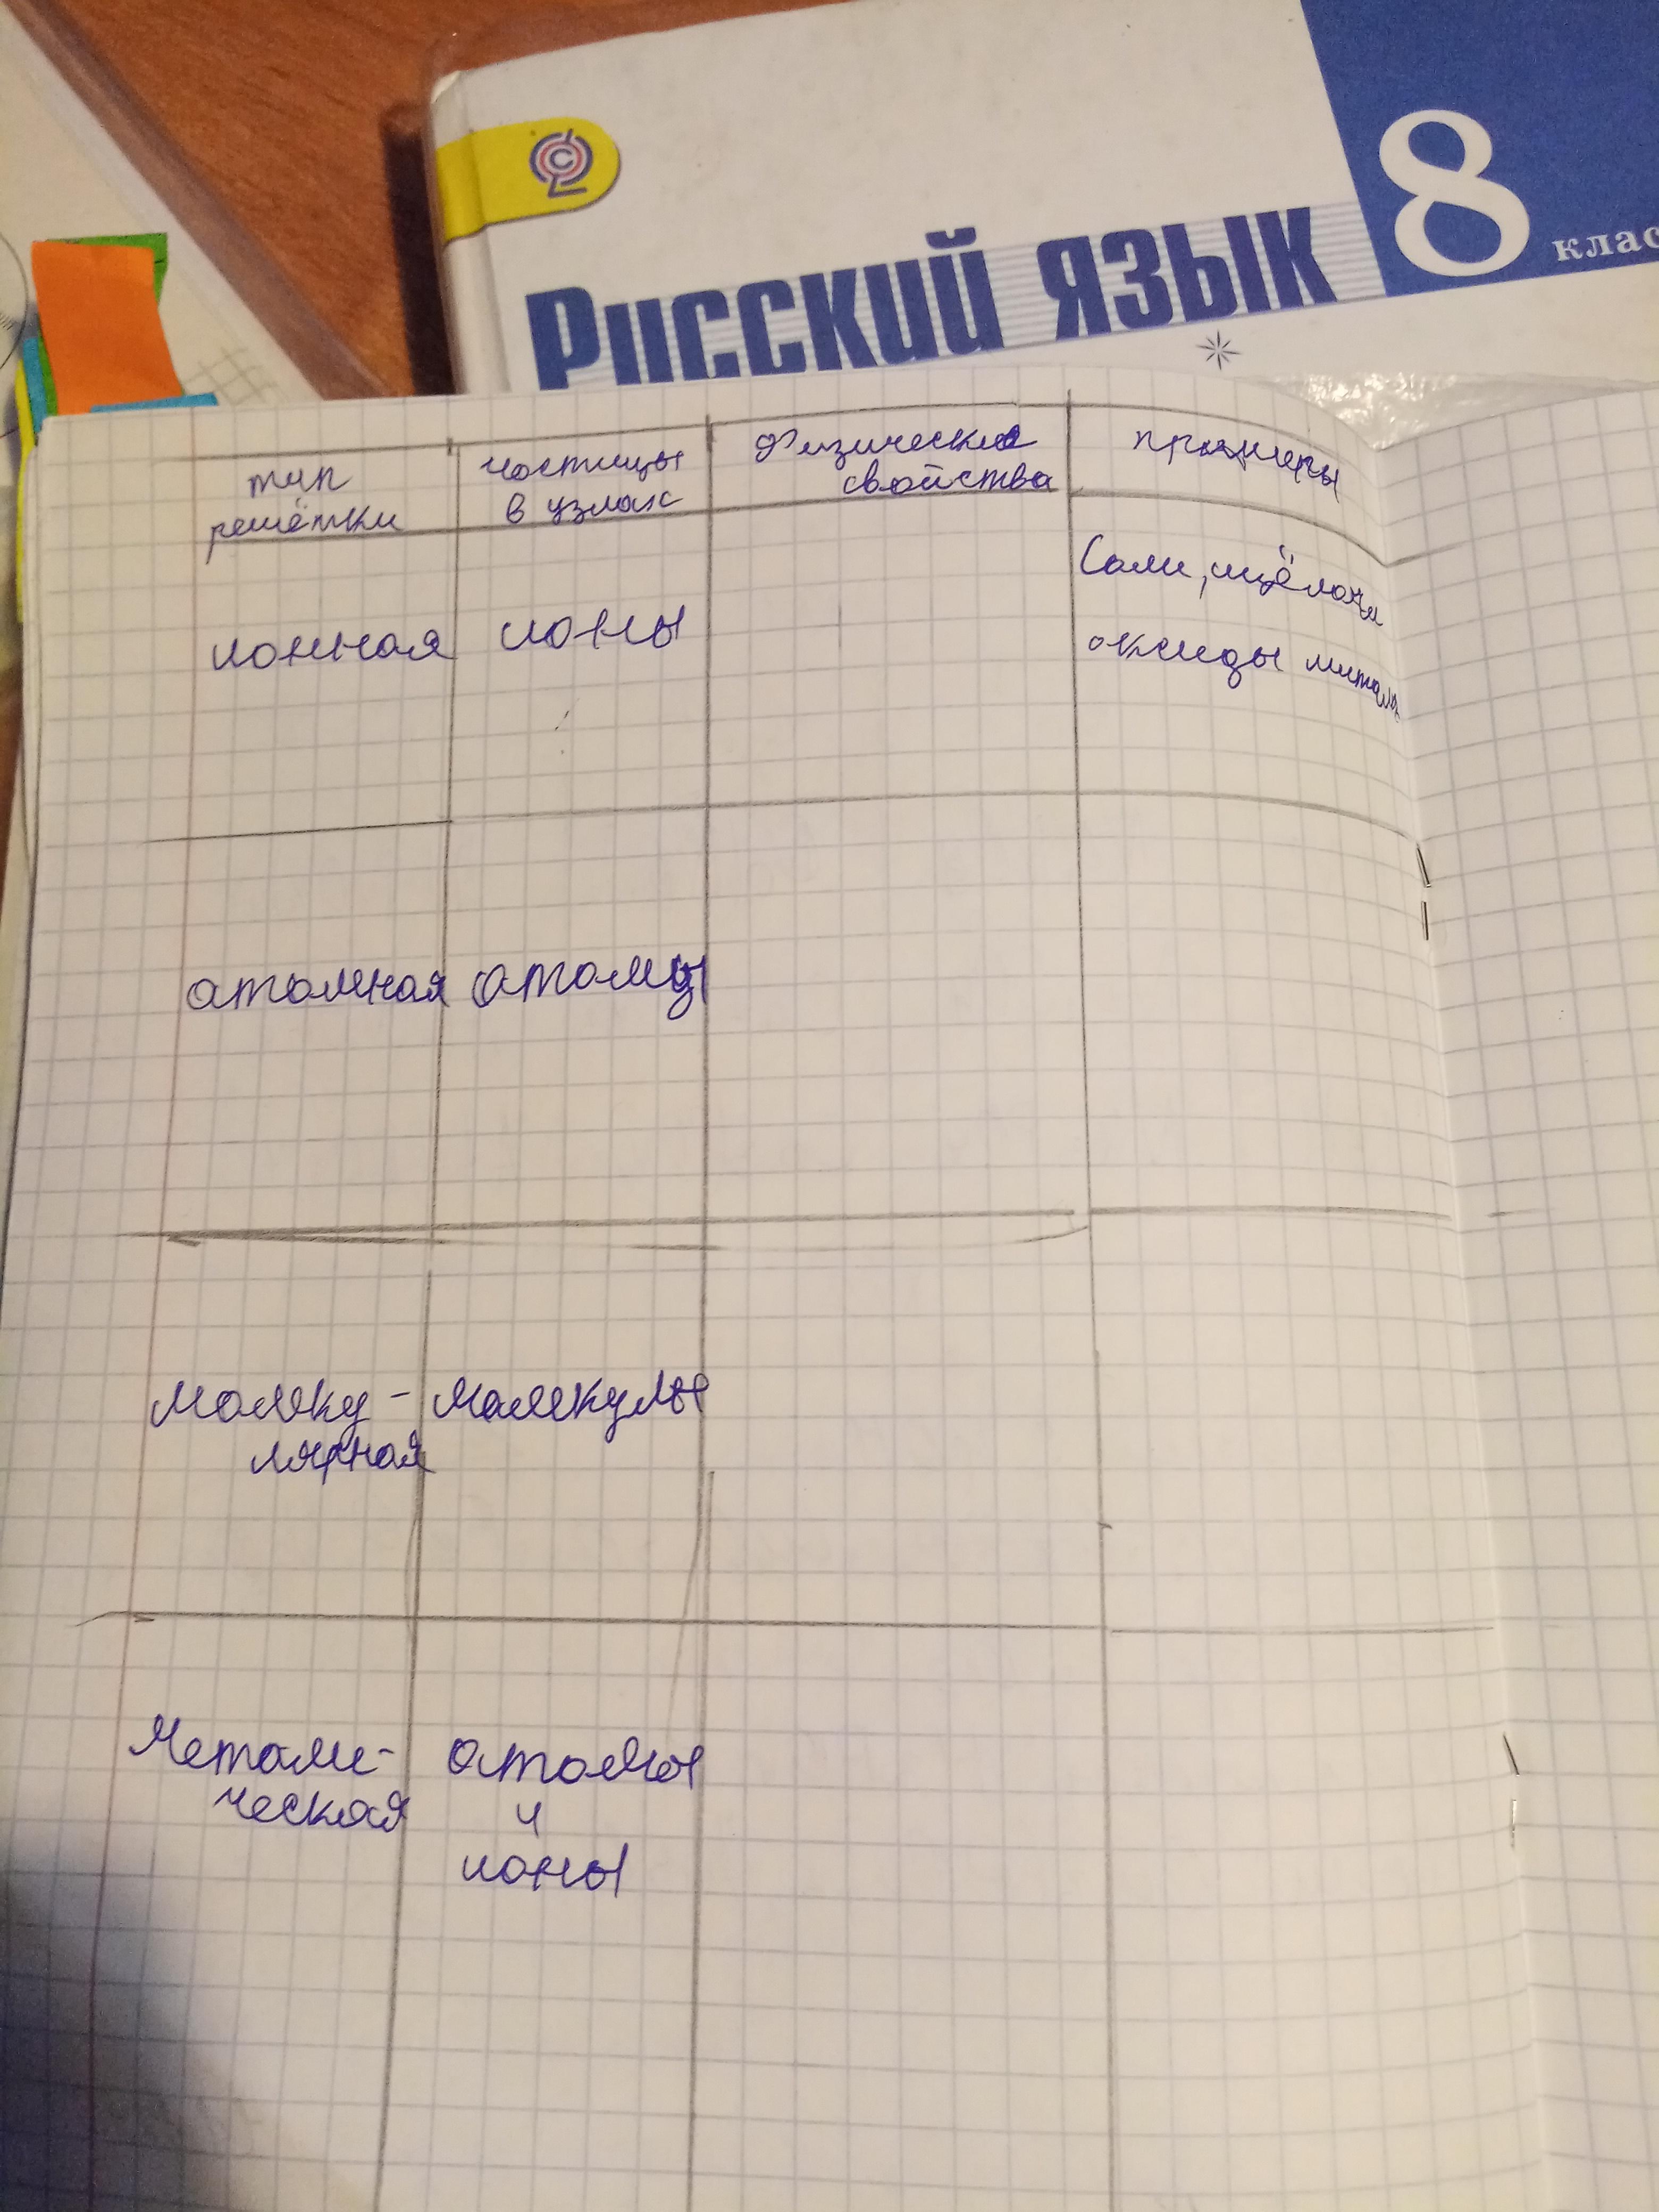 Русский язык
8 клас
тип
решётки
частицы
в узлах
Физические
свойства
примеры
ионная
ионы
Соли, щёлочи
оксиды митала
атомная
атомы
Моляку-
лярная
Малекулы
Метали-
ческая
атомы
и
ионы